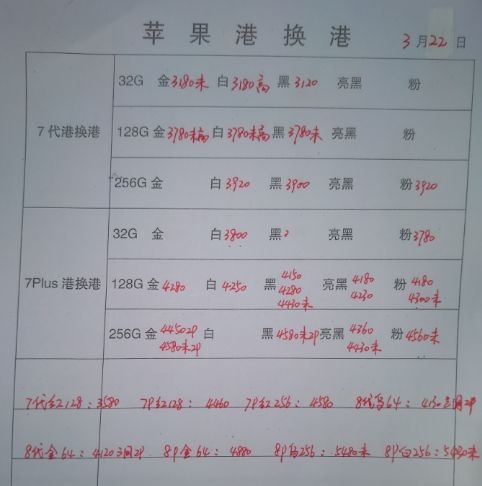 苹果港换港
3月22日
7代港换港
32G 金3180未 白3180高 黑3120 亮黑 粉
128G 金3780未高 白3780未高 黑3780未 亮黑 粉
256G 金 白3920 黑3900 亮黑 粉3920
7Plus港换港
32G 金 白3800 黑 亮黑 粉3780
128G 金4280 白4250 黑4150 4280 4430未 亮黑4180 4230 粉4180 4300未
256G 金4450 2P 4580未2P 白 黑4580未2P 亮黑4360 4430未 粉4560未
7代红128:3580 7P红128:4460 7P红256:4580 8代 64:4130 2P
8代金64:4120 2P 8P金64:4880 8P 256:5480未 8P白256:5430未